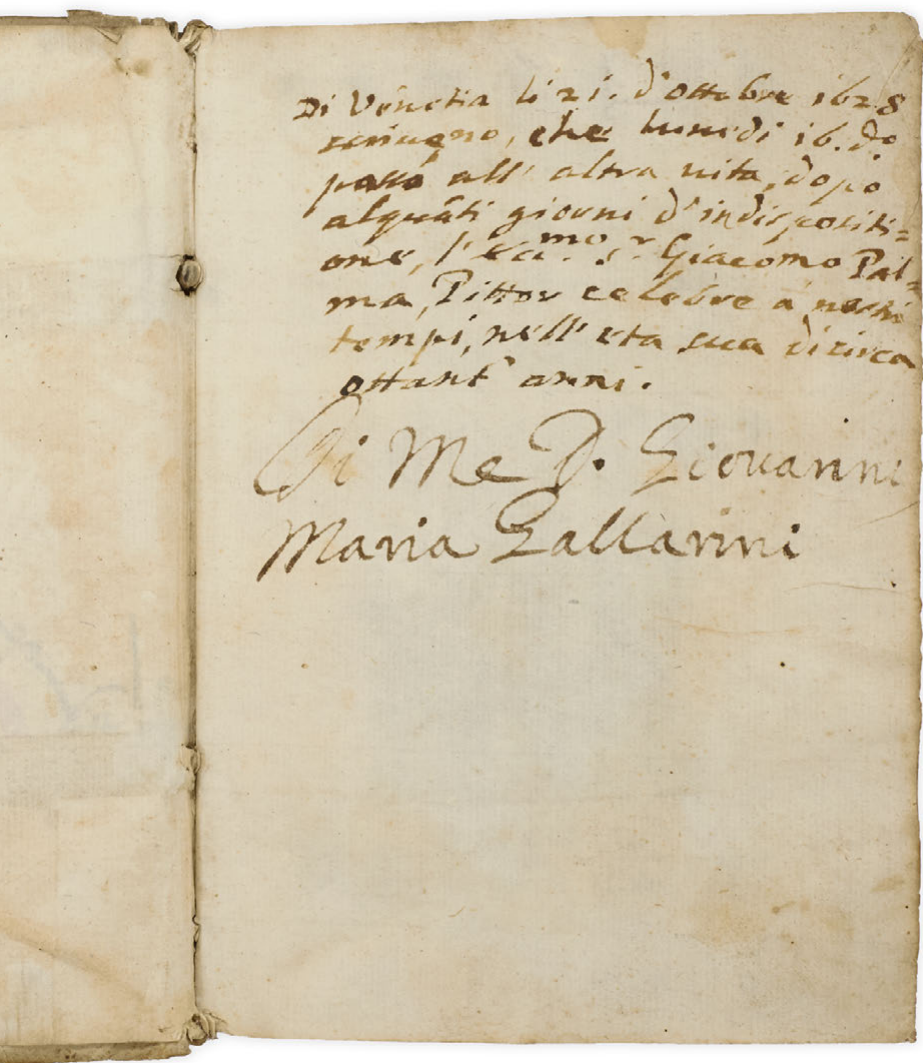 Di Venetia li 21. d'ottobre 1628
scriuono, che lunedi 16. do.
passò all' altra uita, dopo
alquāti giorni d'indispositi=
one, l' Ecc.mo s.r Giacomo Pal=
ma, Pittor celebre a' nostri
tempi, nell' eta sua di circa
ottant' anni.
Di Me D. Giovanni
Maria Gallarini